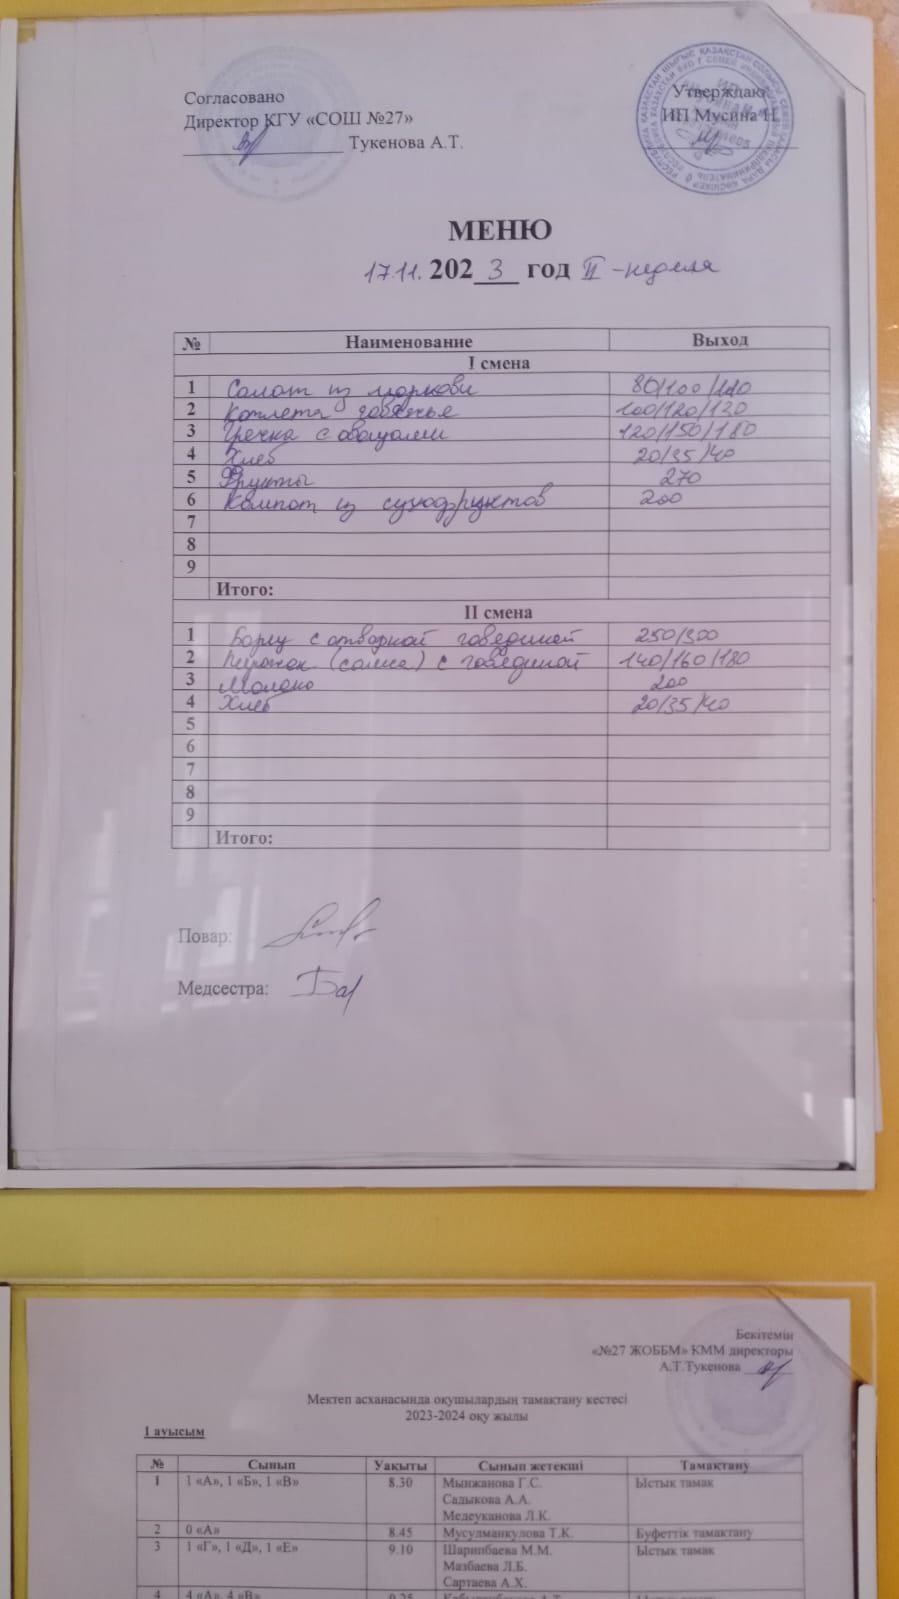 Согласовано
Директор КГУ «СОШ №27»
Тукенова А.Т.
Утверждаю
ИП Мусина Н.
МЕНЮ
17.11. 2023 год II -неделя
№ Наименование Выход
I смена
1 Салат из моркови 80/100/120
2 Котлета говяжье 100/120/120
3 Гречка с овощами 120/150/180
4 Хлеб 20/35/40
5 Фрукты 270
6 Компот из сухофруктов 200
7
8
9
Итого:
II смена
1 Борщ с отварной говядиной 250/300
2 Пирожок (самса) с говядиной 140/160/180
3 Молоко 200
4 Хлеб 20/35/40
5
6
7
8
9
Итого:
Повар:
Медсестра:
Бекітемін
«№27 ЖОББМ» КММ директоры
А.Т.Тукенова
Мектеп асханасында оқушылардың тамақтану кестесі
2023-2024 оқу жылы
I ауысым
№ Сынып Уақыты Сынып жетекші Тамақтану
1 1 «А», 1 «Б», 1 «В» 8.30 Мынжанова Г.С. Ыстық тамақ
Садыкова А.А.
Медеуканова Л.К.
2 0 «А» 8.45 Мусулманкулова Т.К. Буфеттік тамақтану
3 1 «Г», 1 «Д», 1 «Е» 9.10 Шарипбаева М.М. Ыстық тамақ
Мазбаева Л.Б.
Сартаева А.Х.
4 4 «А», 4 «В» 9.25